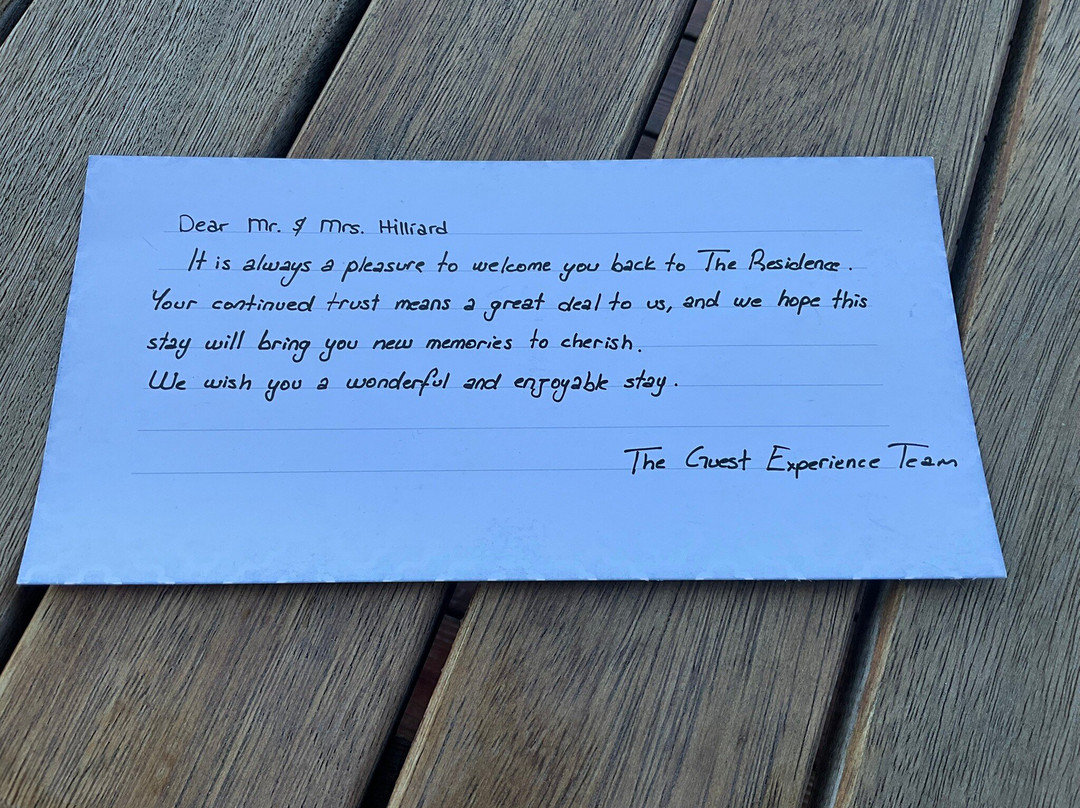 Dear Mr. & Mrs. Hilliard
It is always a pleasure to welcome you back to The Residence.
Your continued trust means a great deal to us, and we hope this
stay will bring you new memories to cherish.
We wish you a wonderful and enjoyable stay.
The Guest Experience Team